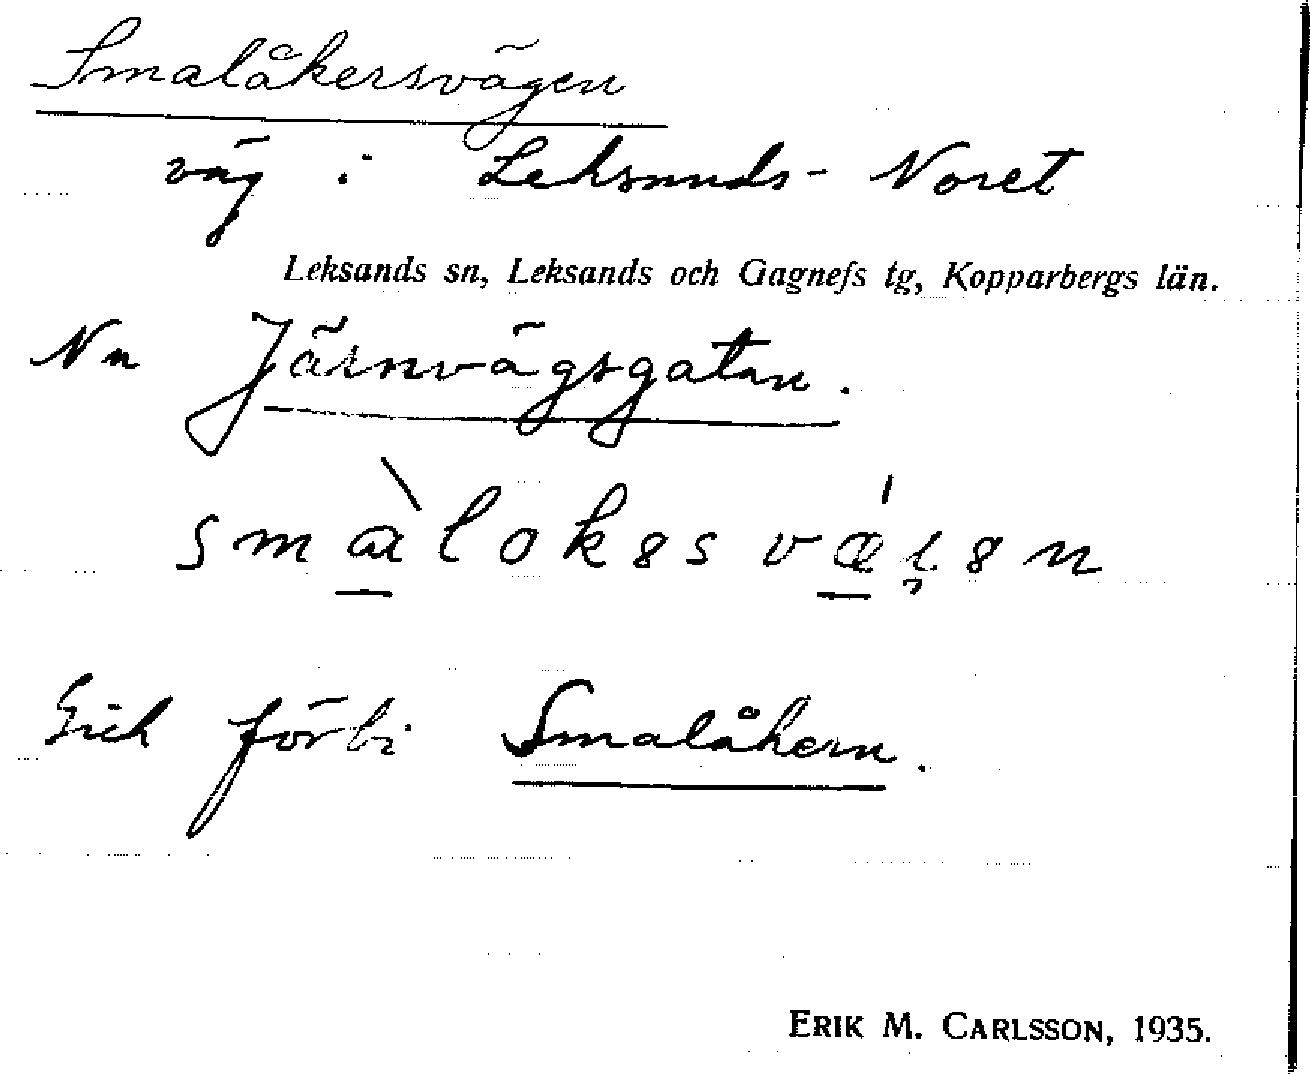 Smalåkersvägen
väg i Leksands-Noret
Leksands sn, Leksands och Gagnefs tg, Kopparbergs län.
Nu Järnvägsgatan.
Gick förbi Smalåkern.
ERIK M. CARLSSON, 1935.